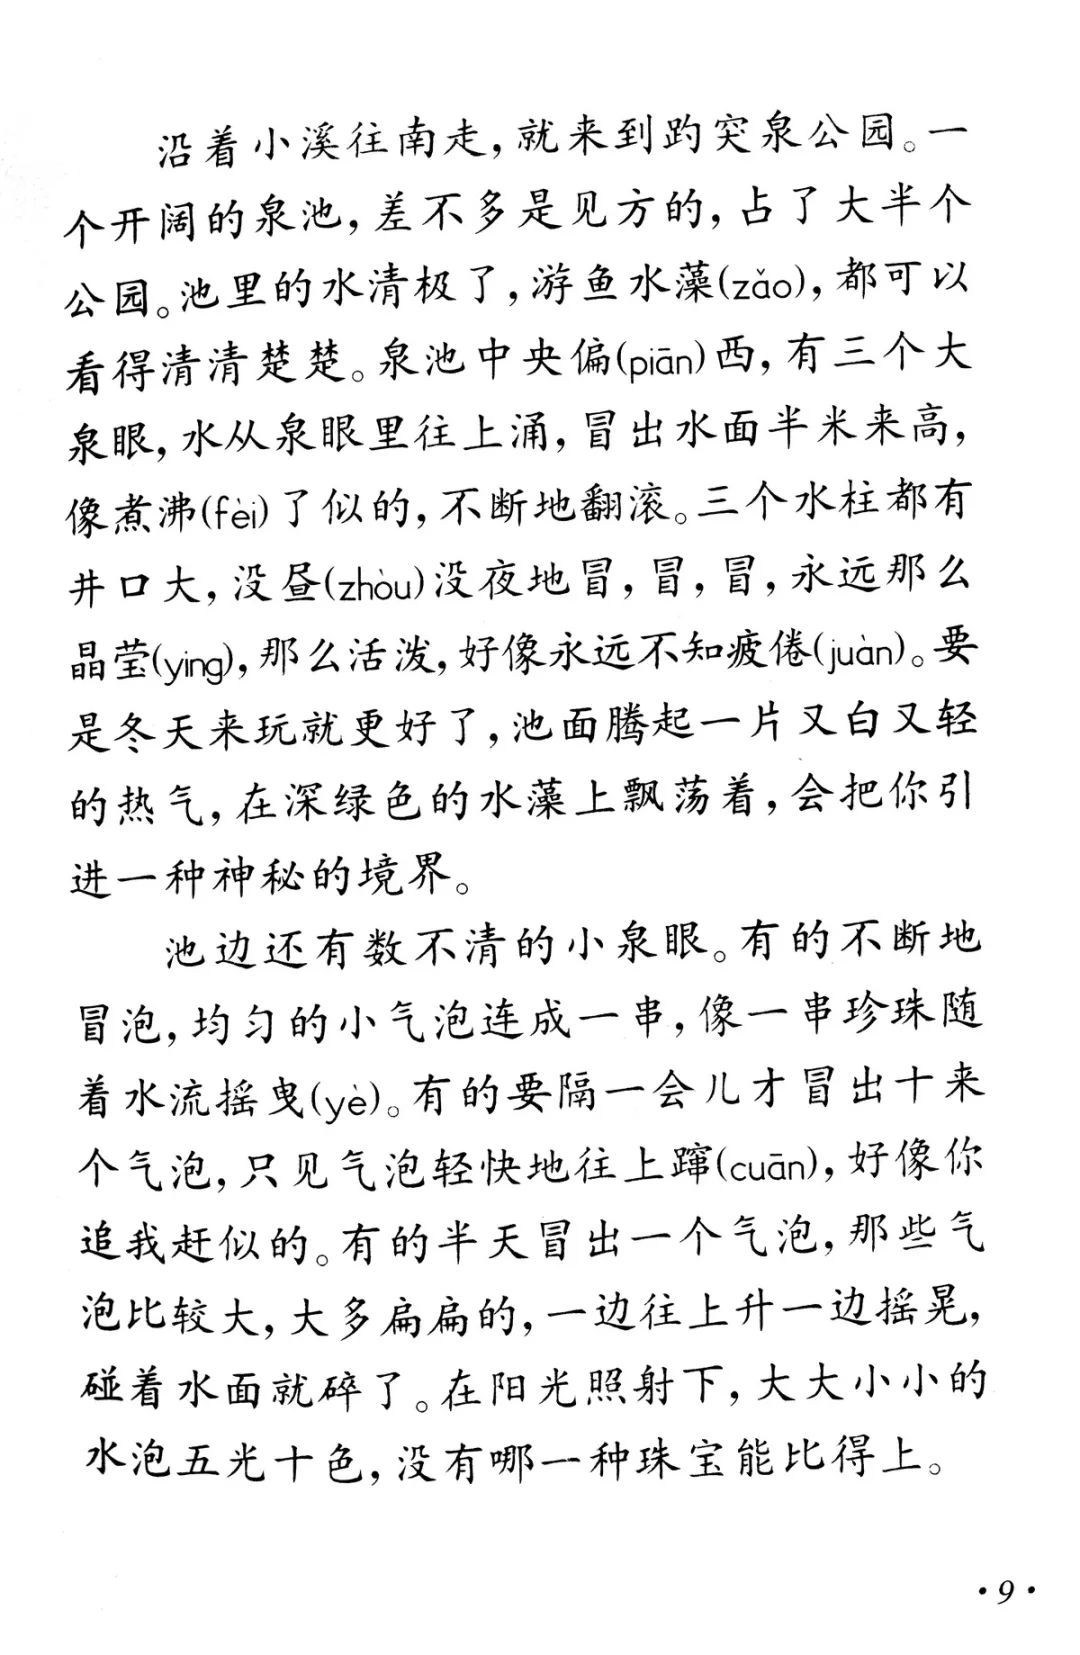 沿着小溪往南走，就来到趵突泉公园。一
个开阔的泉池，差不多是见方的，占了大半个
公园。池里的水清极了，游鱼水藻(zǎo)，都可以
看得清清楚楚。泉池中央偏(piān)西，有三个大
泉眼，水从泉眼里往上涌，冒出水面半米来高，
像煮沸(fèi)了似的，不断地翻滚。三个水柱都有
井口大，没昼(zhòu)没夜地冒，冒，冒，永远那么
晶莹(yíng)，那么活泼，好像永远不知疲倦(juàn)。要
是冬天来玩就更好了，池面腾起一片又白又轻
的热气，在深绿色的水藻上飘荡着，会把你引
进一种神秘的境界。
池边还有数不清的小泉眼。有的不断地
冒泡，均匀的小气泡连成一串，像一串珍珠随
着水流摇曳(yè)。有的要隔一会儿才冒出十来
个气泡，只见气泡轻快地往上蹿(cuān)，好像你
追我赶似的。有的半天冒出一个气泡，那些气
泡比较大，大多扁扁的，一边往上升一边摇晃，
碰着水面就碎了。在阳光照射下，大大小小的
水泡五光十色，没有哪一种珠宝能比得上。
·9·